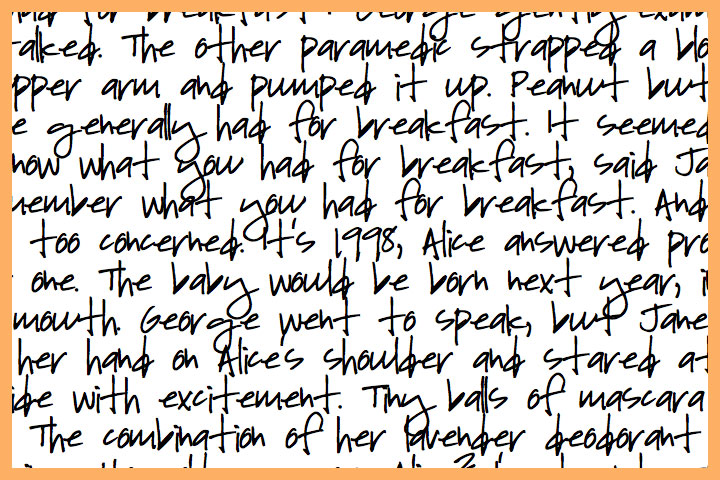 had for breakfast. George gently exam
alked. The other paramedic strapped a blo
pper arm and pumped it up. Peanut but
e generally had for breakfast. It seemed
now what you had for breakfast, said Ja
member what you had for breakfast. And
too concerned. It's 1998, Alice answered pro
one. The baby would be born next year, i
mouth. George went to speak, but Jane
her hand on Alice's shoulder and stared at
ide with excitement. Tiny balls of mascara
The combination of her lavender deodorant